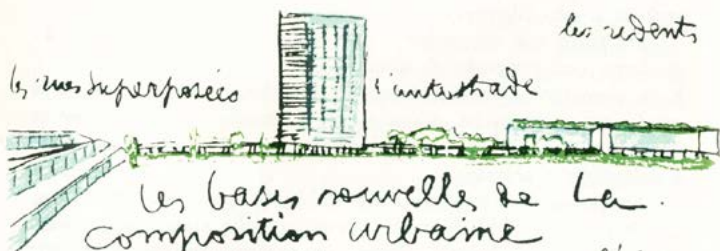 les redents
les rues superposées l'autostrade
les bases nouvelles de la
composition urbaine